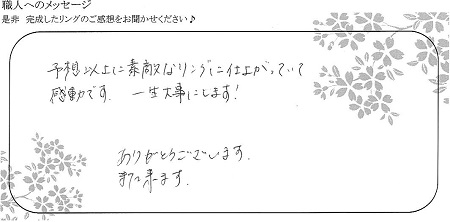 職人へのメッセージ
是非 完成したリングのご感想をお聞かせください♪
予想以上に素敵なリングに仕上がっていて
感動です. 一生大事にします!
ありがとうございます.
また来ます.